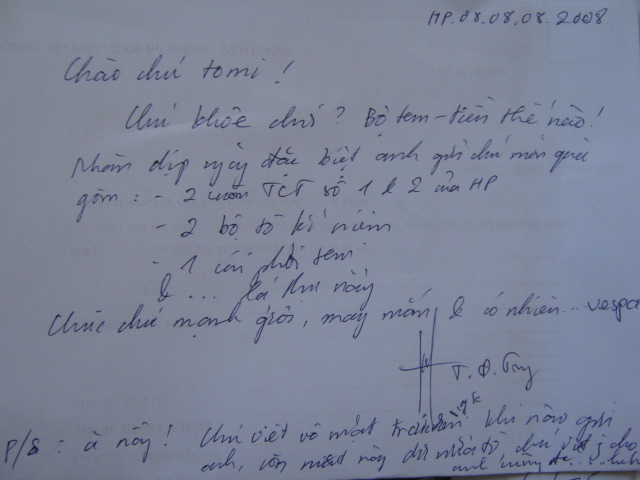 HP.08.08.08.2008
Chào chú tomi!
Chú khỏe chứ? Bộ tem-tiền thế nào!
Nhân dịp ngày đặc biệt anh gửi chú món quà
gồm: - 2 cuốn TCT số 1 & 2 của HP
- 2 bộ tờ kỉ niệm
- 1 cái phơi tem
& ... lá thư này
Chúc chú mạnh giỏi, may mắn & có nhiên... vespa
T.Đ.
P/S: à này! Chú viết vô mặt khi nào gửi
anh, còn mặt này chú viết cho